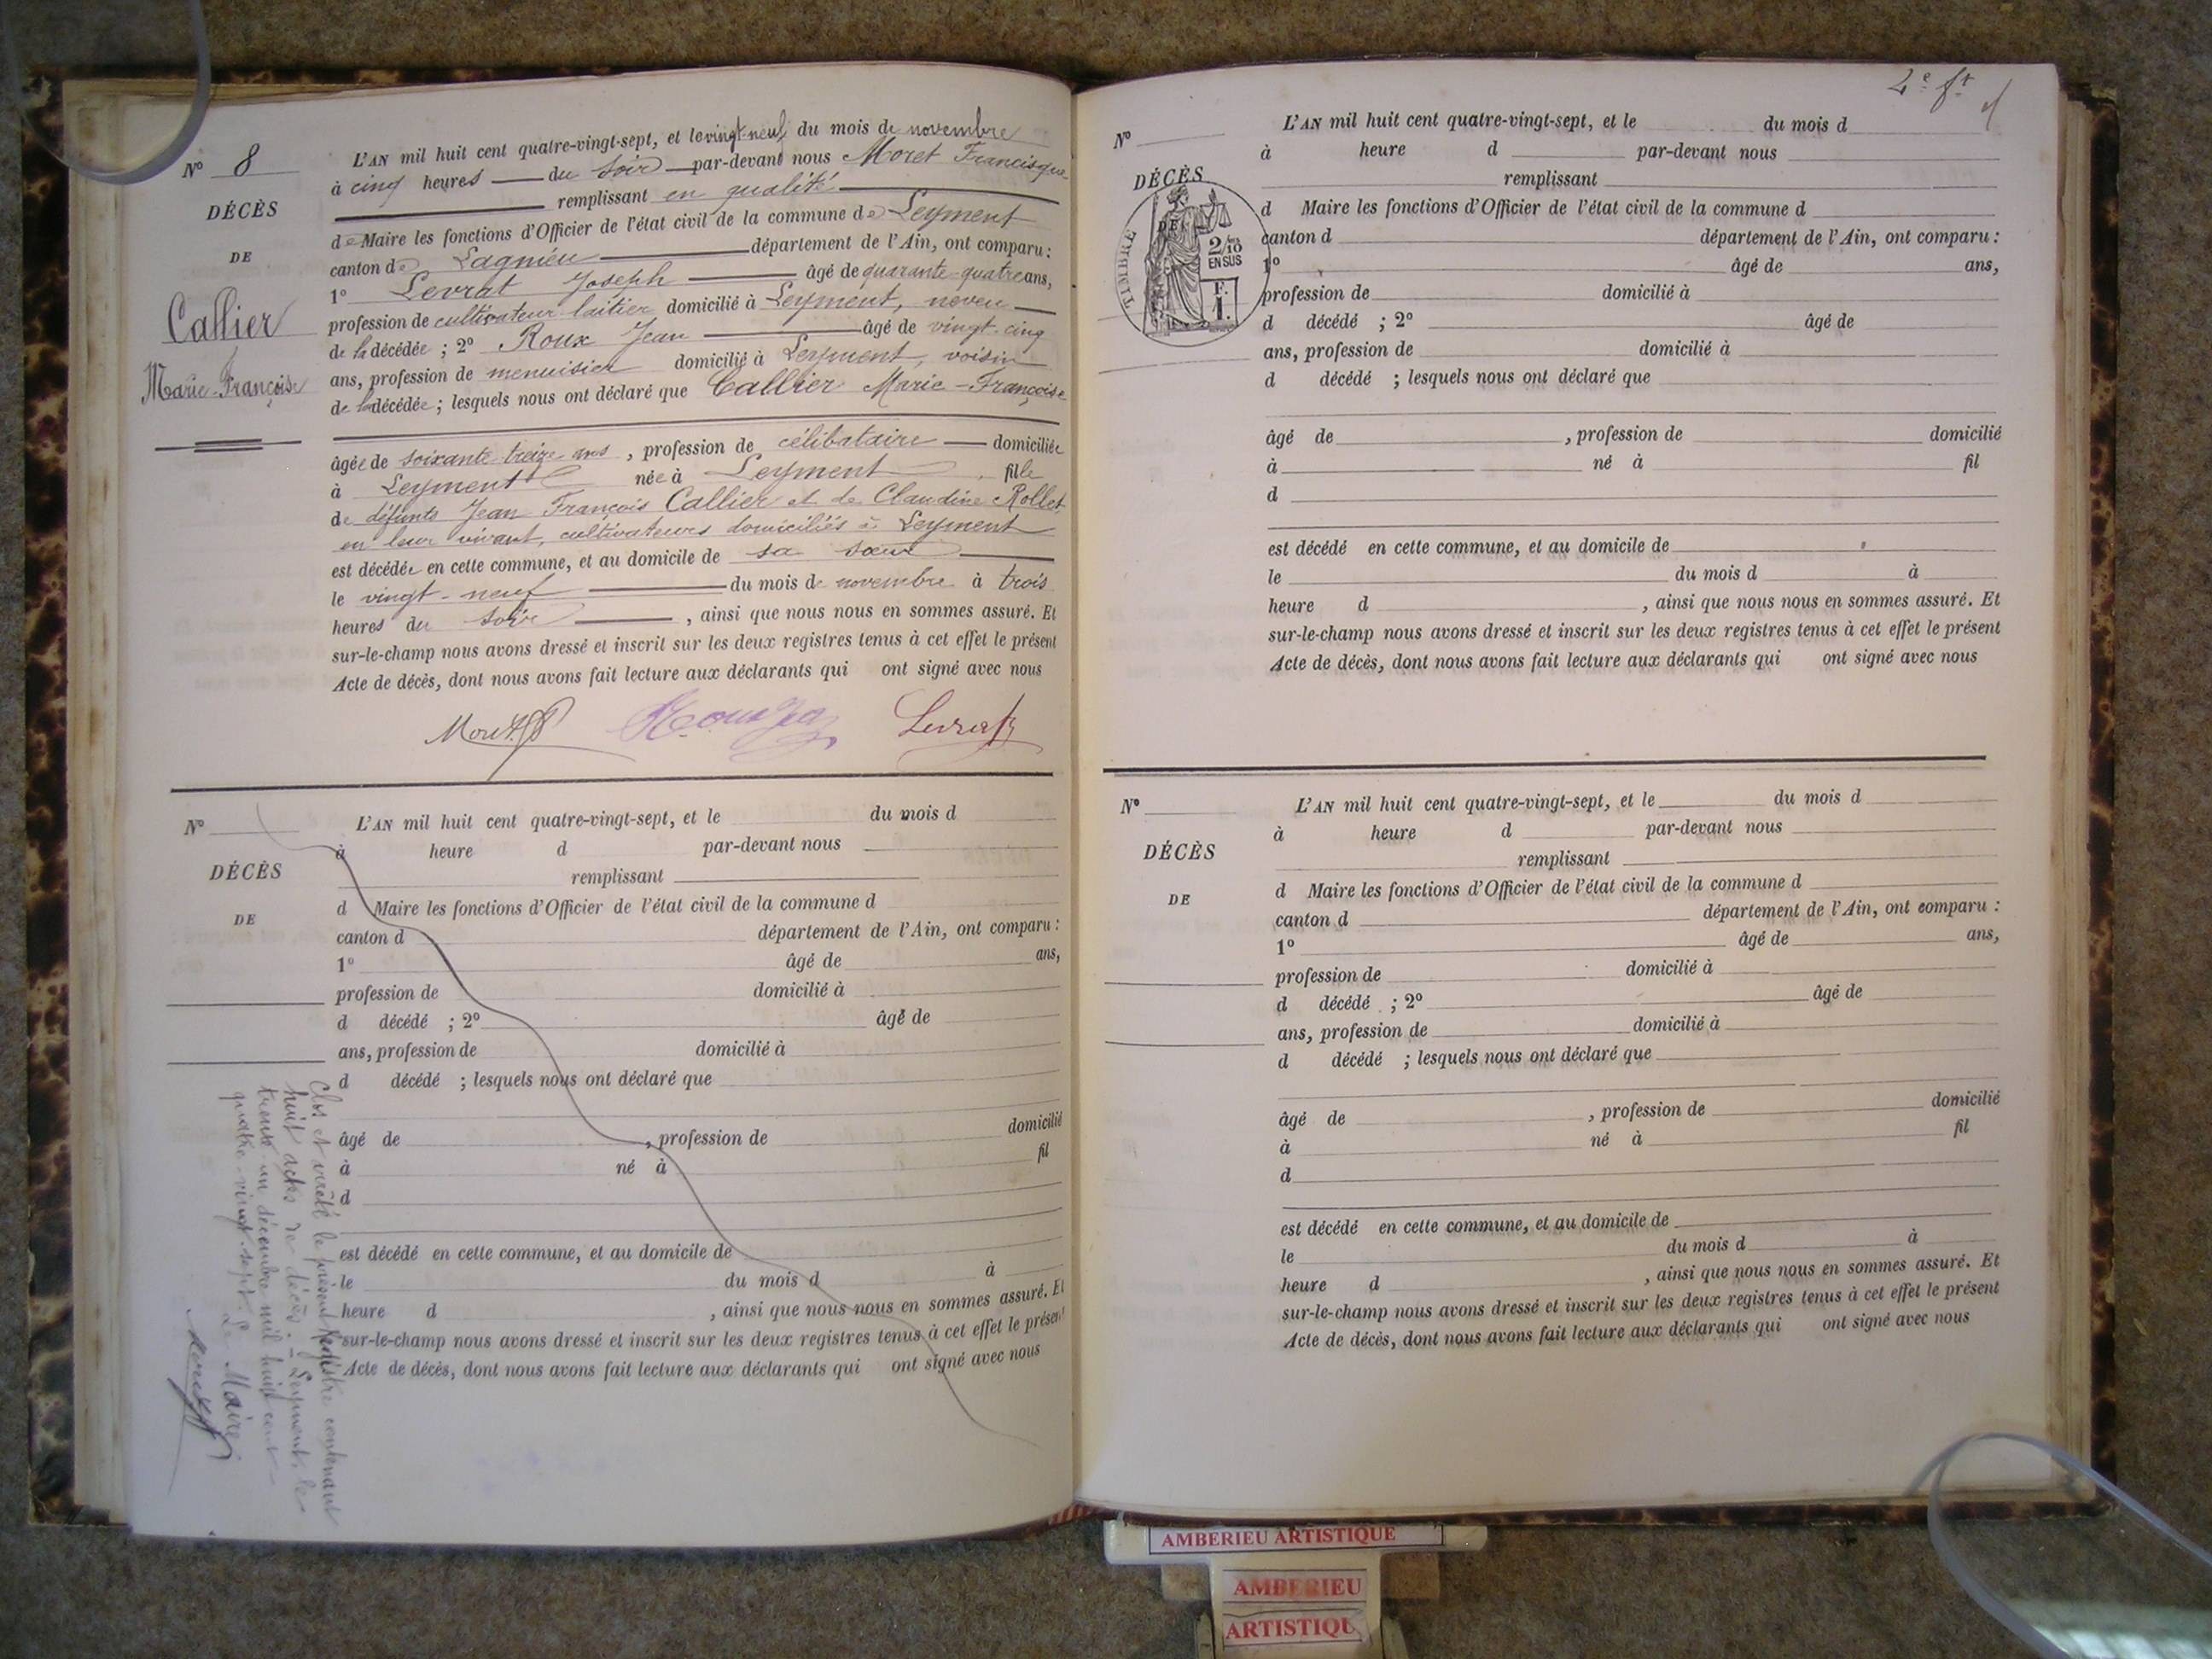 Nº 8
DÉCÈS
DE
Callier
Marie-Françoise
L'AN mil huit cent quatre-vingt-sept, et le vingt-neuf du mois de novembre
à cinq heures du soir par-devant nous Moret Francisque
remplissant en qualité
de Maire les fonctions d'Officier de l'état civil de la commune de Leyment
canton de Lagnieu département de l'Ain, ont comparu :
1º Levrat Joseph âgé de quarante-quatre ans,
profession de cultivateur laitier domicilié à Leyment, neveu
de la décédée ; 2º Roux Jean âgé de vingt-cinq
ans, profession de menuisier domicilié à Leyment, voisin
de la décédée ; lesquels nous ont déclaré que Callier Marie-Françoise
âgée de soixante treize ans , profession de célibataire domiciliée
à Leyment née à Leyment fille
de défunts Jean François Callier et de Claudine Rollet
en leur vivant, cultivateurs domiciliés à Leyment
est décédée en cette commune, et au domicile de sa sœur
le vingt-neuf du mois de novembre à trois
heures du soir , ainsi que nous nous en sommes assuré. Et
sur-le-champ nous avons dressé et inscrit sur les deux registres tenus à cet effet le présent
Acte de décès, dont nous avons fait lecture aux déclarants qui ont signé avec nous
Moret Roux Jean Levrat
Nº
DÉCÈS
DE
L'AN mil huit cent quatre-vingt-sept, et le du mois d
à heure d par-devant nous
remplissant
d Maire les fonctions d'Officier de l'état civil de la commune d
canton d département de l'Ain, ont comparu :
1º âgé de ans,
profession de domicilié à
d décédé ; 2º âgé de
ans, profession de domicilié à
d décédé ; lesquels nous ont déclaré que
âgé de , profession de domicilié
à né à fil
d
est décédé en cette commune, et au domicile de
le du mois d à
heure d , ainsi que nous nous en sommes assuré. Et
sur-le-champ nous avons dressé et inscrit sur les deux registres tenus à cet effet le présent
Acte de décès, dont nous avons fait lecture aux déclarants qui ont signé avec nous
Clos et arrêté le présent registre contenant
huit actes de décès. - Leyment, le
trente un décembre mil huit cent
quatre-vingt-sept. Le Maire
Moret
2e ft
Nº
DÉCÈS
DE
TIMBRE
2/10
EN SUS
F.
1.
L'AN mil huit cent quatre-vingt-sept, et le du mois d
à heure d par-devant nous
remplissant
d Maire les fonctions d'Officier de l'état civil de la commune d
canton d département de l'Ain, ont comparu :
1º âgé de ans,
profession de domicilié à
d décédé ; 2º âgé de
ans, profession de domicilié à
d décédé ; lesquels nous ont déclaré que
âgé de , profession de domicilié
à né à fil
d
est décédé en cette commune, et au domicile de
le du mois d à
heure d , ainsi que nous nous en sommes assuré. Et
sur-le-champ nous avons dressé et inscrit sur les deux registres tenus à cet effet le présent
Acte de décès, dont nous avons fait lecture aux déclarants qui ont signé avec nous
Nº
DÉCÈS
DE
L'AN mil huit cent quatre-vingt-sept, et le du mois d
à heure d par-devant nous
remplissant
d Maire les fonctions d'Officier de l'état civil de la commune d
canton d département de l'Ain, ont comparu :
1º âgé de ans,
profession de domicilié à
d décédé ; 2º âgé de
ans, profession de domicilié à
d décédé ; lesquels nous ont déclaré que
âgé de , profession de domicilié
à né à fil
d
est décédé en cette commune, et au domicile de
le du mois d à
heure d , ainsi que nous nous en sommes assuré. Et
sur-le-champ nous avons dressé et inscrit sur les deux registres tenus à cet effet le présent
Acte de décès, dont nous avons fait lecture aux déclarants qui ont signé avec nous
AMBERIEU ARTISTIQUE
AMBERIEU
ARTISTIQU